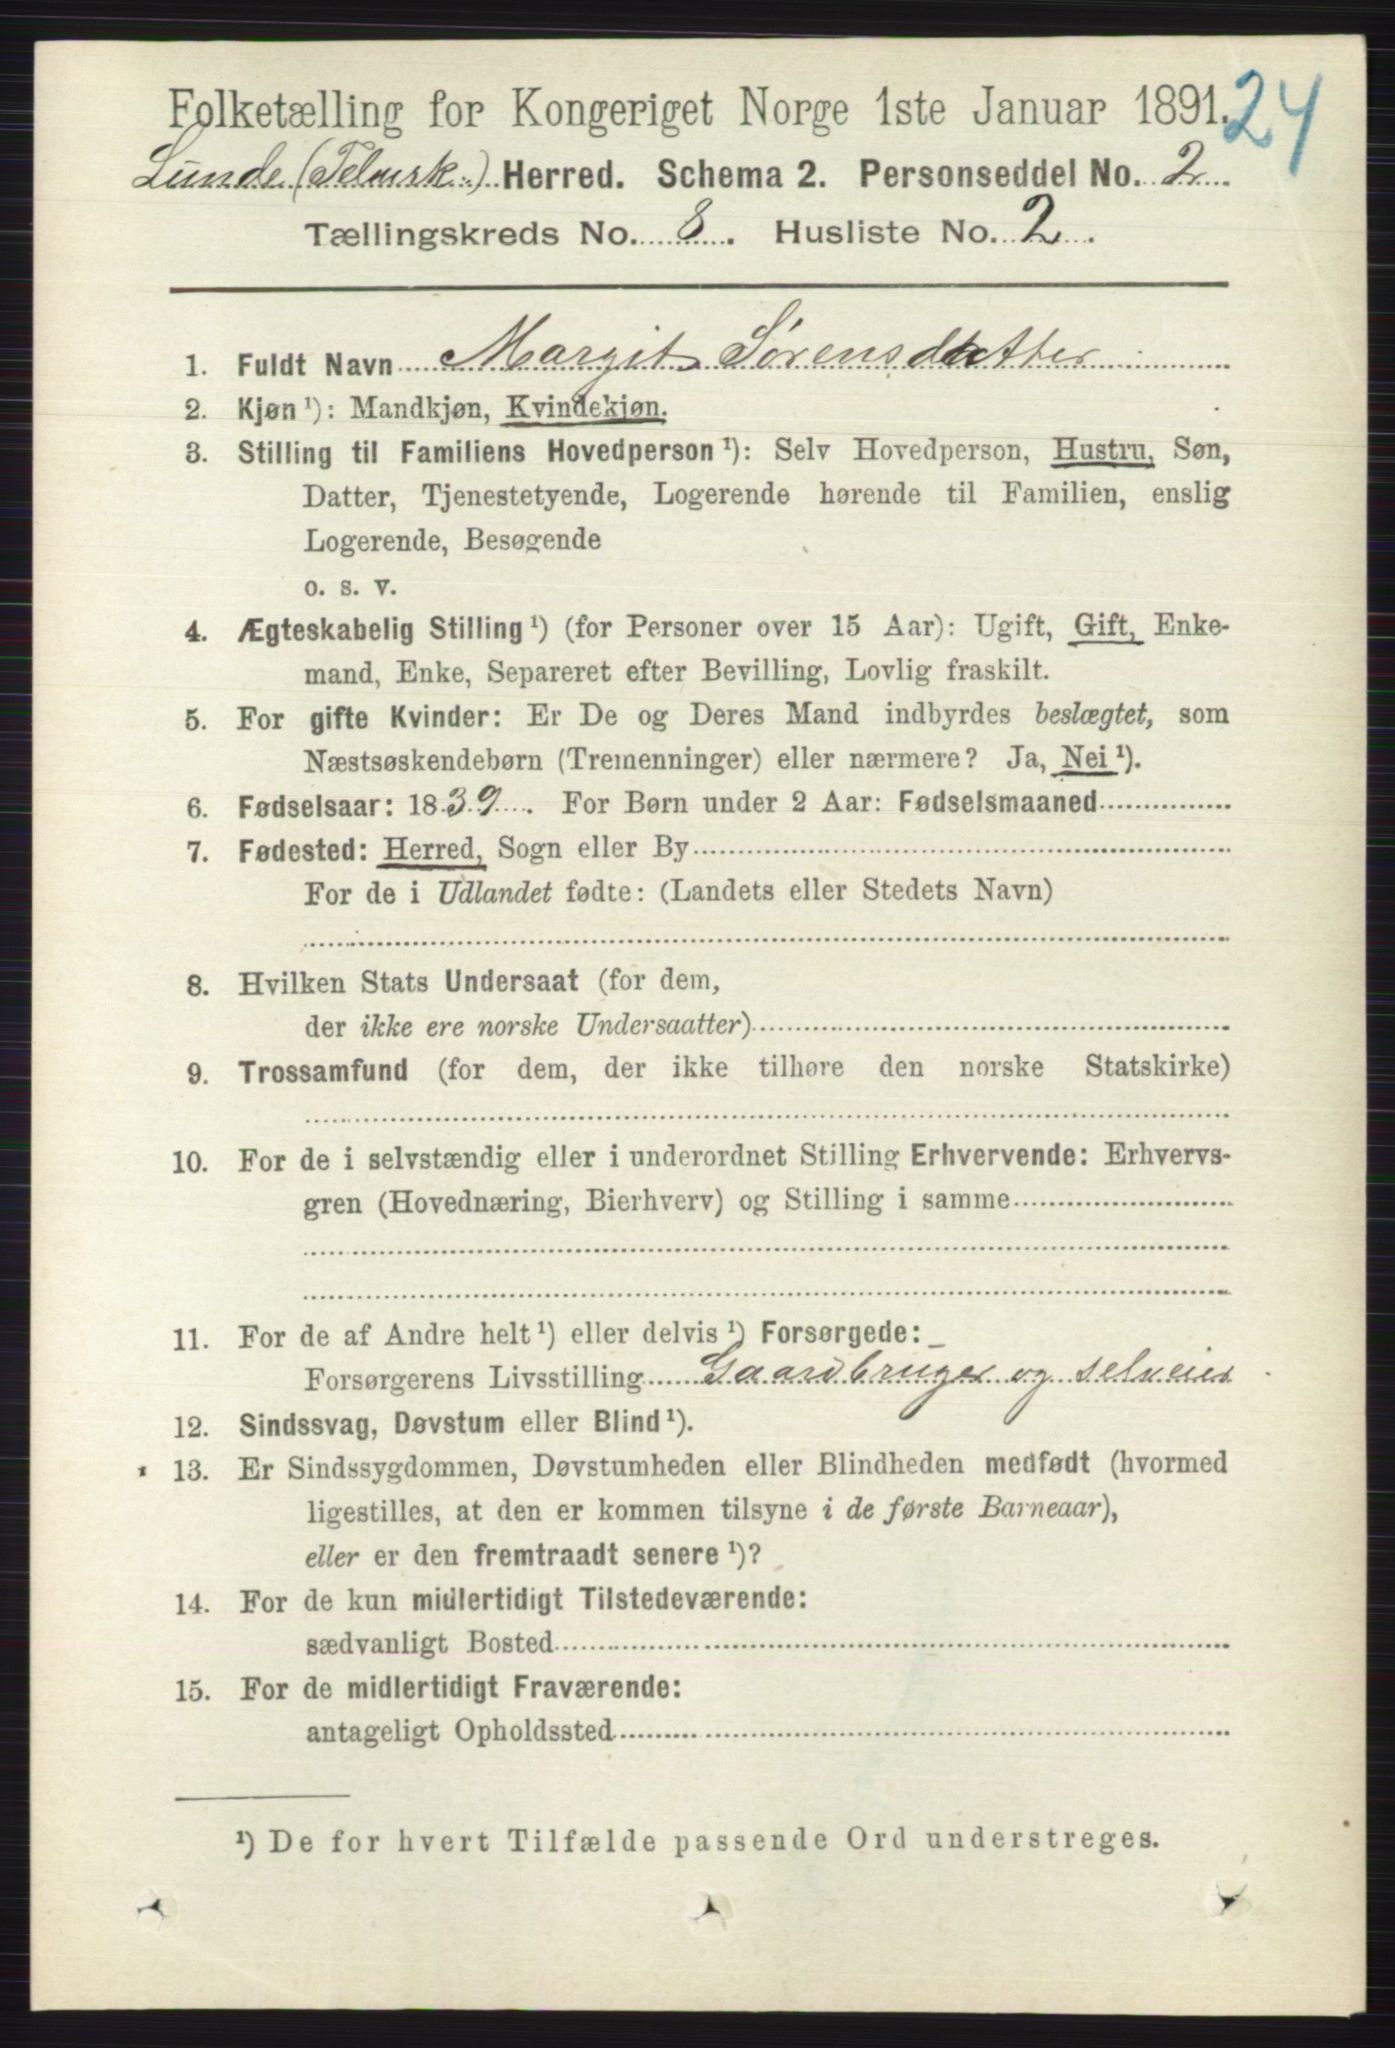 Folketælling for Kongeriget Norge 1ste Januar 1891.
24
Lunde (Telmrk.) Herred. Schema 2. Personseddel No. 2
Tællingskreds No. 8. Husliste No. 2.
1. Fuldt Navn Margit Sørensdatter
2. Kjøn ¹): Mandkjøn, Kvindekjøn.
3. Stilling til Familiens Hovedperson ¹): Selv Hovedperson, Hustru, Søn,
Datter, Tjenestetyende, Logerende hørende til Familien, enslig
Logerende, Besøgende
o. s. v.
4. Ægteskabelig Stilling ¹) (for Personer over 15 Aar): Ugift, Gift, Enke-
mand, Enke, Separeret efter Bevilling, Lovlig fraskilt.
5. For gifte Kvinder: Er De og Deres Mand indbyrdes beslægtet, som
Næstsøskendebørn (Tremenninger) eller nærmere? Ja, Nei ¹).
6. Fødselsaar: 1839. For Børn under 2 Aar: Fødselsmaaned
7. Fødested: Herred, Sogn eller By
For de i Udlandet fødte: (Landets eller Stedets Navn)
8. Hvilken Stats Undersaat (for dem,
der ikke ere norske Undersaatter)
9. Trossamfund (for dem, der ikke tilhøre den norske Statskirke)
10. For de i selvstændig eller i underordnet Stilling Erhvervende: Erhvervs-
gren (Hovednæring, Bierhverv) og Stilling i samme
11. For de af Andre helt ¹) eller delvis ¹) Forsørgede:
Forsørgerens Livsstilling Gaardbruger og selveier
12. Sindssvag, Døvstum eller Blind ¹).
13. Er Sindssygdommen, Døvstumheden eller Blindheden medfødt (hvormed
ligestilles, at den er kommen tilsyne i de første Barneaar),
eller er den fremtraadt senere ¹)?
14. For de kun midlertidigt Tilstedeværende:
sædvanligt Bosted
15. For de midlertidigt Fraværende:
antageligt Opholdssted
¹) De for hvert Tilfælde passende Ord understreges.